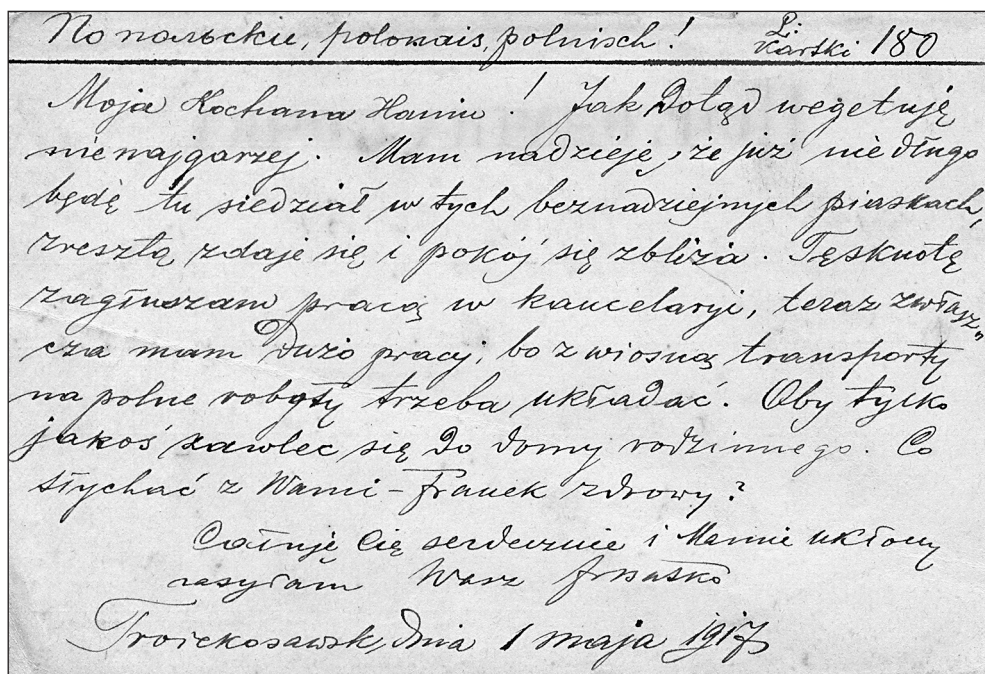 По польски, polonais, polnisch! L. kartki 180
Moja Kochana Haniu! Jak dotąd wegetuję
nienajgorzej. Mam nadzieję, że już niedługo
będę tu siedział w tych beznadziejnych piaskach,
zresztą zdaje się i pokój się zbliża. Tęsknotę
zagłuszam pracą w kancelaryi, teraz zwłasz„
cza mam dużo pracy, bo z wiosną transporty
na polne roboty trzeba układać. Oby tylko
jakoś zawlec się do domu rodzinnego. Co
słychać z Wami – Franek zdrowy?
Całuję Cię serdecznie i Mamie ukłony
zasyłam Wasz
Troickosawsk, dnia 1 maja 1917